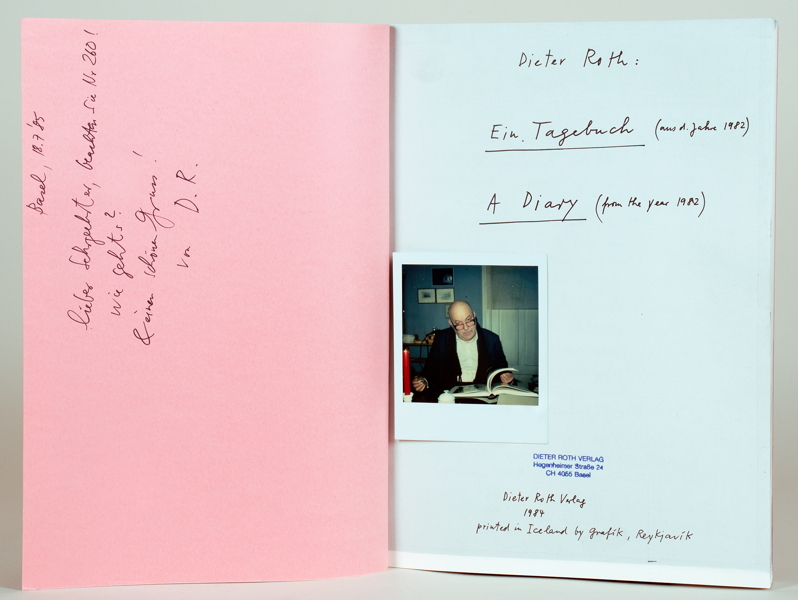 Basel, 18.7.85
lieber Sehrgeehrter, beachten Sie Nr. 260!
wie gehts?
& einen schönen Gruss!
von D. R.
Dieter Roth:
Ein Tagebuch (aus d. Jahre 1982)
A Diary (from the year 1982)
DIETER ROTH VERLAG
Hegenheimer Straße 24
CH 4055 Basel
Dieter Roth Verlag
1984
printed in Iceland by Grafík, Reykjavík